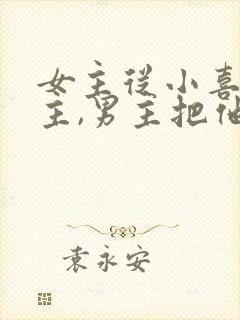 女主从小喜
主,男主把他
袁永安